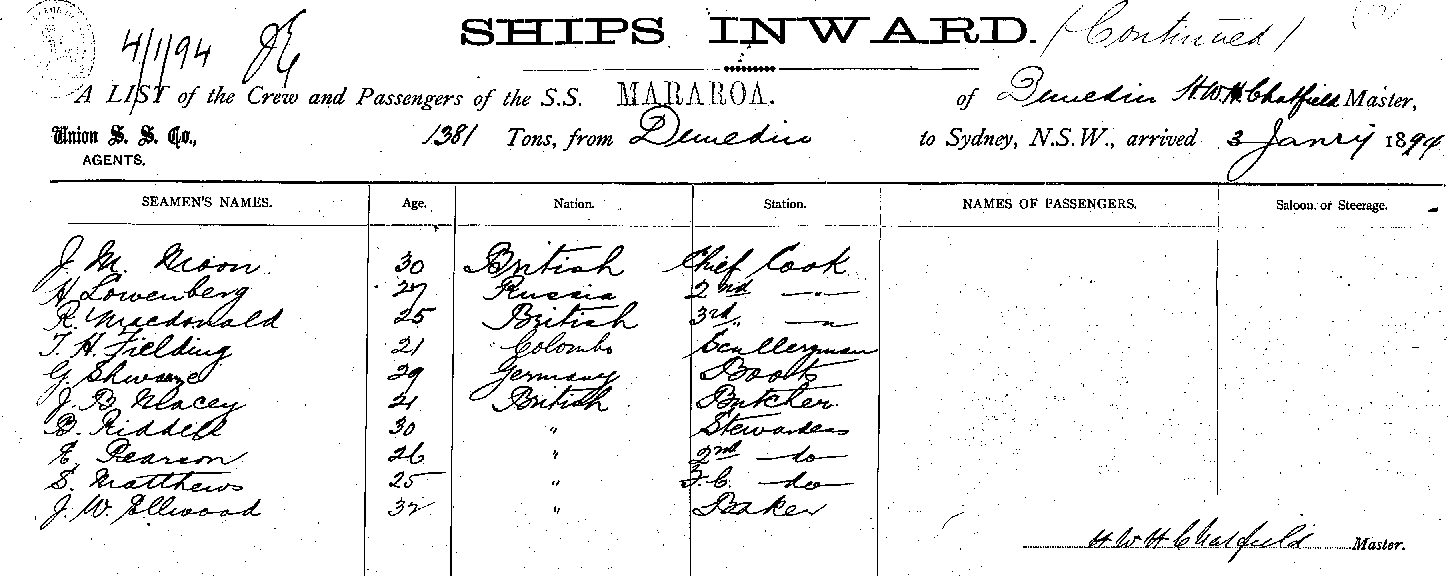 4/1/94
SHIPS INWARD. (Continued)
A LIST of the Crew and Passengers of the S.S. MARAROA. of Dunedin H.W.H. Chatfield Master,
Union S. S. Co., 1381 Tons, from Dunedin to Sydney, N.S.W., arrived 3 Janry 1894
AGENTS.
SEAMEN'S NAMES. Age. Nation. Station. NAMES OF PASSENGERS. Saloon or Steerage.
J. M. Moon 30 British Chief Cook
H Lowenberg 27 Russia 2nd —"—
R. Macdonald 25 British 3rd " —"
T. H. Fielding 21 Colombo Sculleryman
G. 29 Germany Boots
J. B. Macey 21 British Butcher
B. Riddell 30 " Stewardess
E. Pearson 26 " 2nd —do—
S. Matthews 25 " F.C. —do—
J. W. Ellwood 32 " Baker
H W H Chatfield Master.